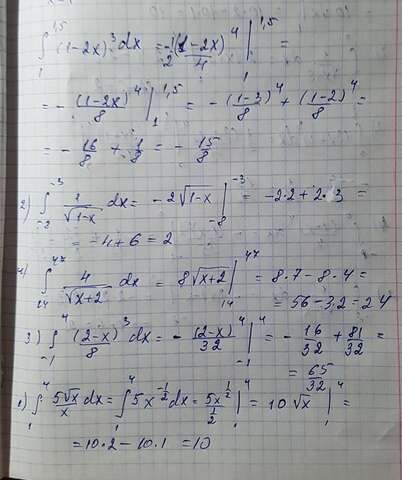 ∫₁^1,5 (1-2x)³dx = -1/2 (1-2x)⁴/4 |₁^1,5 =
= - (1-2x)⁴/8 |₁^1,5 = - (1-3)⁴/8 + (1-2)⁴/8 =
= - 16/8 + 1/8 = - 15/8
2) ∫₋₂^-3 1/√(1-x) dx = -2√(1-x) |₋₈^-3 = -2·2+2·3 =
= -4+6=2
4) ∫₁₄^47 4/√(x+2) dx = 8√(x+2) |₁₄^47 = 8·7-8·4 =
= 56-32=24
3) ∫₋₁^4 (2-x)³/8 dx = - (2-x)⁴/32 |₋₁^4 = - 16/32 + 81/32 =
= 65/32
1) ∫₁^4 5√x/x dx = ∫₁^4 5x^(-1/2) dx = 5x^(1/2)/(1/2) |₁^4 = 10√x |₁^4 =
= 10·2-10·1 = 10